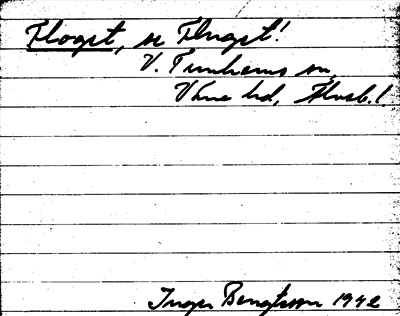 Flogst, se Flugst!
V. Tunhems sn,
Väne hd, Älvsb. l.
Inger Bengtsson 1942